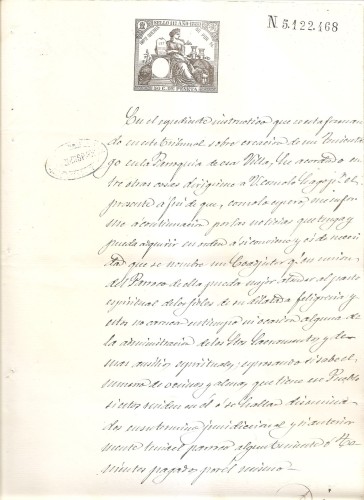 N 5.122.168
En el espediente instructivo que se esta formando
en este tribunal sobre ereccion de un Teniente
en la Parroquia de esa Villa, he acordado en
tre otras cosas dirigirme a V. como lo hago p.r el
presente a fin de que, como lo espero, me infor
me a continuacion por las noticias que tenga y
pueda adquirir en orden a si conviene y es de necesi
dad que se nombre un Coadjutor q.e en union
del Parroco de ella pueda mejor atender al pasto
espiritual de los fieles de su dilatada feligresia y
estos no carezcan en tiempo ni ocasion alguna de
la administracion de los Stos Sacramentos y de
mas auxilios espirituales; espresando si sabe el
numero de vecinos y almas que tiene ese Pueblo
si estos residen en él ó se hallan disemina
dos en su termino jurisdiccional y si anterior
mente tenia el parroco algun Teniente ó Te
nientes pagados por él mismo.